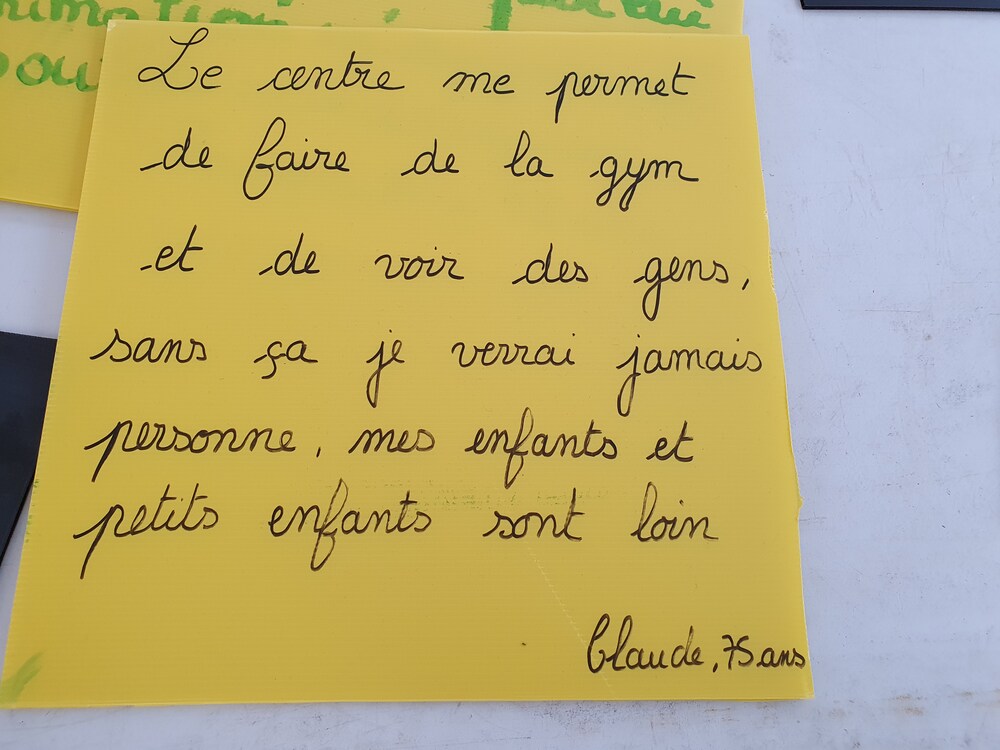 Le centre me permet
de faire de la gym
et de voir des gens,
sans ça je verrai jamais
personne, mes enfants et
petits enfants sont loin
Claude, 75 ans